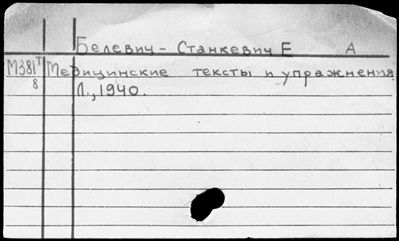 Белевич-Станкевич Е А
М381т Медицинские тексты и упражнения
8 Л., 1940.